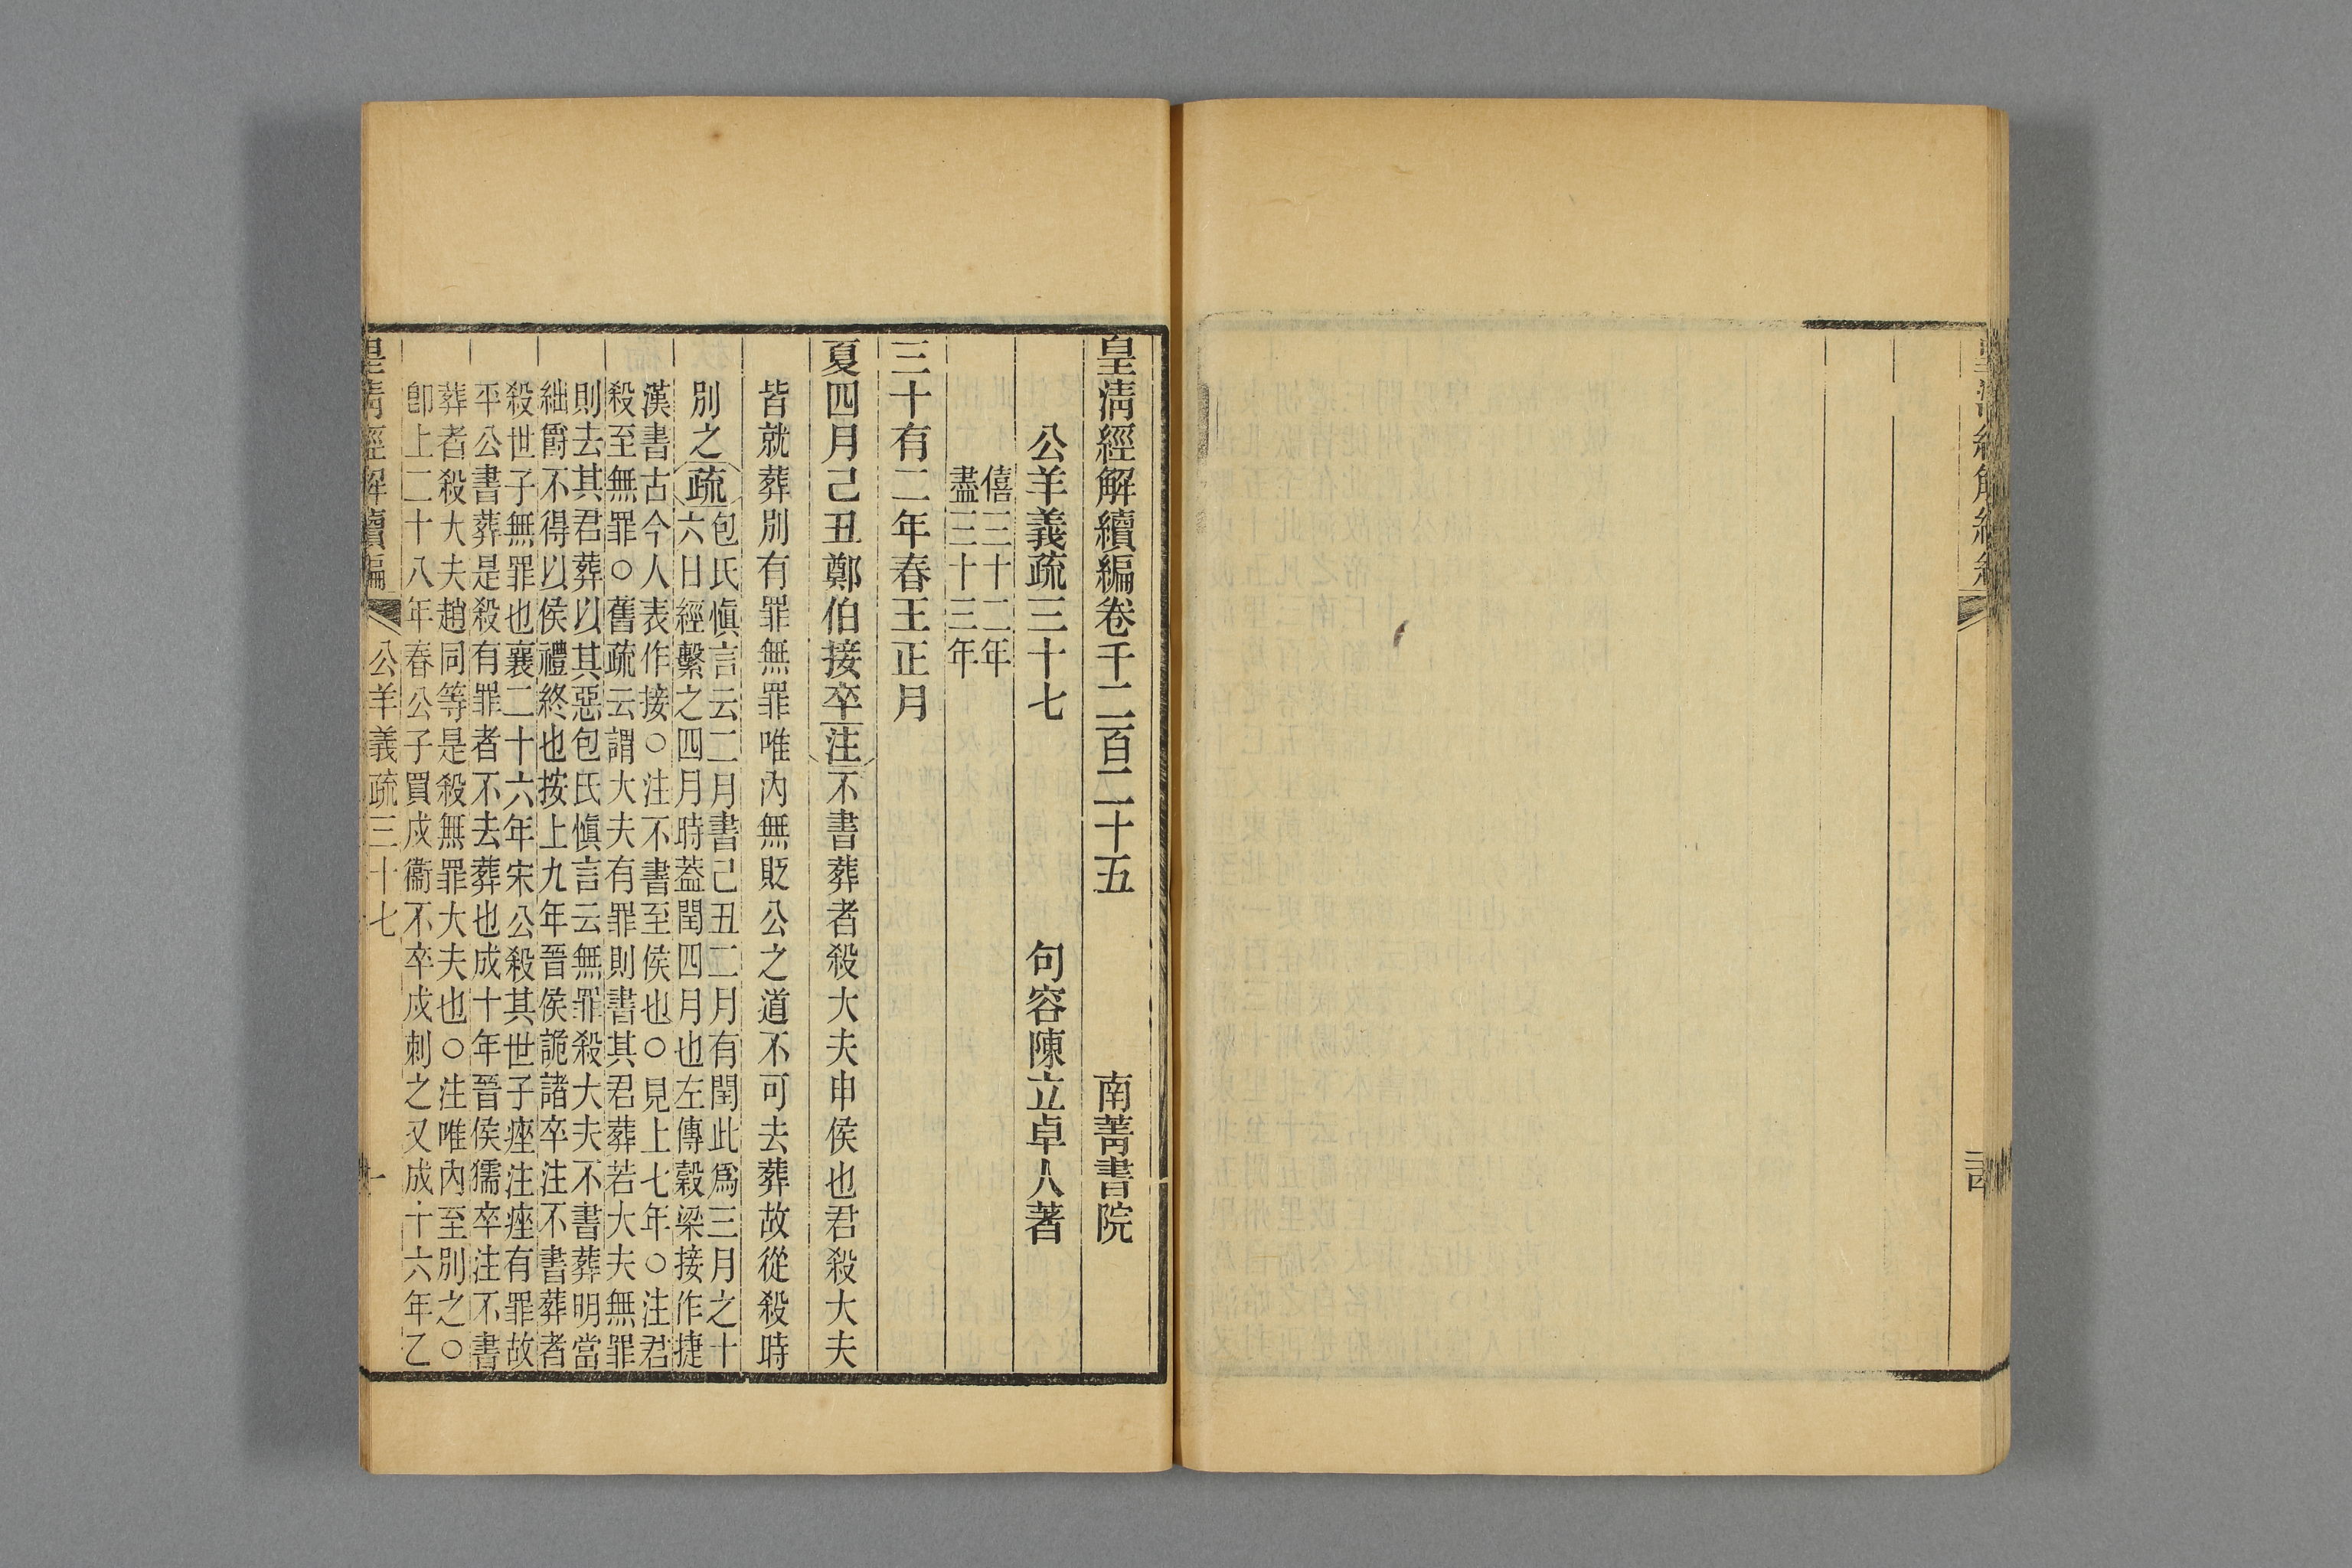 皇清經解續編卷千二百二十五　南菁書院
公羊義疏三十七　句容陳立卓人著
僖三十二年
盡三十三年
三十有二年春王正月
夏四月己丑鄭伯接卒注不書葬者殺大夫申侯也君殺大夫
皆就葬別有罪無罪唯內無貶公之道不可去葬故從殺時
別之疏
包氏愼言云二月書己丑二月有閏此爲三月之十
六日經繫之四月時葢閏四月也左傳穀梁接作捷
漢書古今人表作接○注不書至侯也○見上七年○注君
殺至無罪○舊疏云謂大夫有罪則書其君葬若大夫無罪
則去其君葬以其惡包氏愼言云無罪殺大夫不書葬明當
絀爵不得以侯禮終也按上九年晉侯詭諸卒注不書葬者
殺世子無罪也襄二十六年宋公殺其世子痤注痤有罪故
平公書葬是殺有罪者不去葬也成十年晉侯獳卒注不書
葬者殺大夫趙同等是殺無罪大夫也○注唯內至別之○
卽上二十八年春公子買戍衞不卒戍刺之又成十六年乙
皇清經解續編　公羊義疏三十七　一